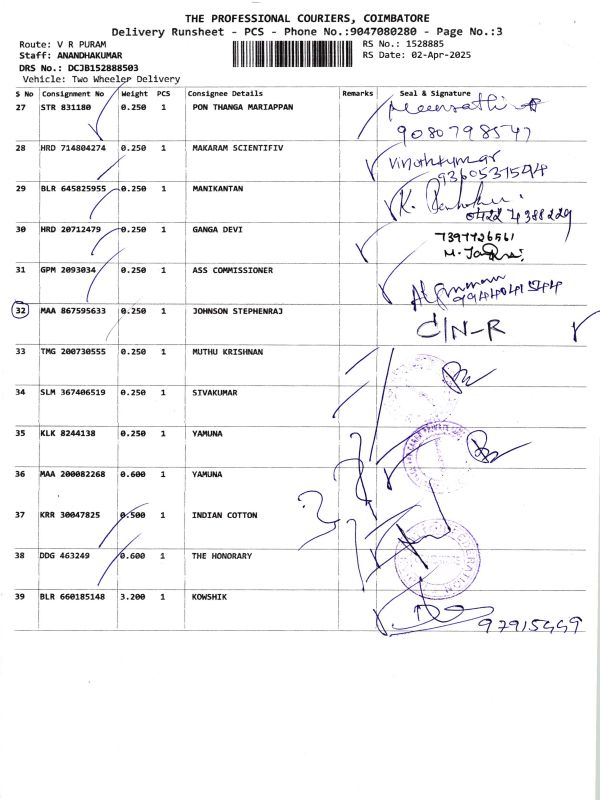 THE PROFESSIONAL COURIERS, COIMBATORE
Delivery Runsheet - PCS - Phone No.:9047080280 - Page No.:3
Route: V R PURAM RS No.: 1528885
Staff: ANANDHAKUMAR RS Date: 02-Apr-2025
DRS No.: DCJB152888503
Vehicle: Two Wheeler Delivery
S No Consignment No Weight PCS Consignee Details Remarks Seal & Signature
27 STR 831180 0.250 1 PON THANGA MARIAPPAN
9080798547
28 HRD 714804274 0.250 1 MAKARAM SCIENTIFIV Vinothkumar
29 BLR 645825955 0.250 1 MANIKANTAN
0422 4388229
30 HRD 20712479 0.250 1 GANGA DEVI 7397726561
31 GPM 2093034 0.250 1 ASS COMMISSIONER
9944041544
32 MAA 867595633 0.250 1 JOHNSON STEPHENRAJ C/N-R
33 TMG 200730555 0.250 1 MUTHU KRISHNAN
34 SLM 367406519 0.250 1 SIVAKUMAR
35 KLK 8244138 0.250 1 YAMUNA
36 MAA 200082268 0.600 1 YAMUNA
37 KRR 30047825 0.500 1 INDIAN COTTON
38 DDG 463249 0.600 1 THE HONORARY
39 BLR 660185148 3.200 1 KOWSHIK